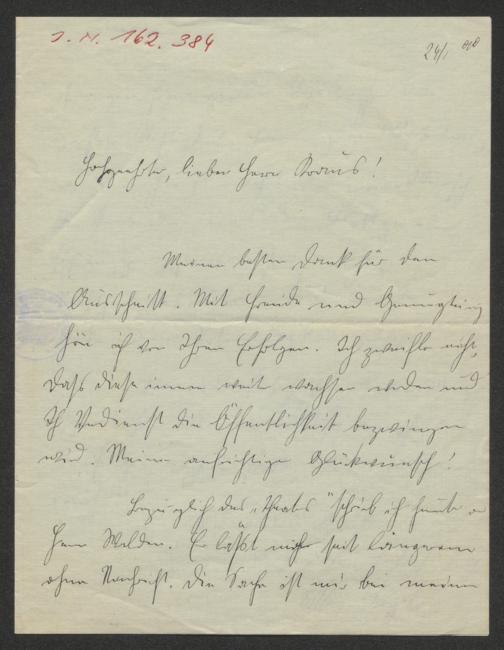 I. N. 162.384
24/I 
Hochgeehrter, lieber Herr Kraus!
Meinen besten Dank für den
Ausschnitt. Mit Freude und Genugtuung
hör ich von Ihren Erfolgen. Ich zweifle nicht,
dass diese immer weiter wachsen werden und
Ihr Verdienst die Öffentlichkeit bezwingen
wird. Meinen aufrichtigen Glückwunsch!
Bezüglich des „Theaters" schrieb ich heute an
Herrn Walden. Er lässt mich seit längerem
ohne Nachricht. Die Sache ist mir bei meinem